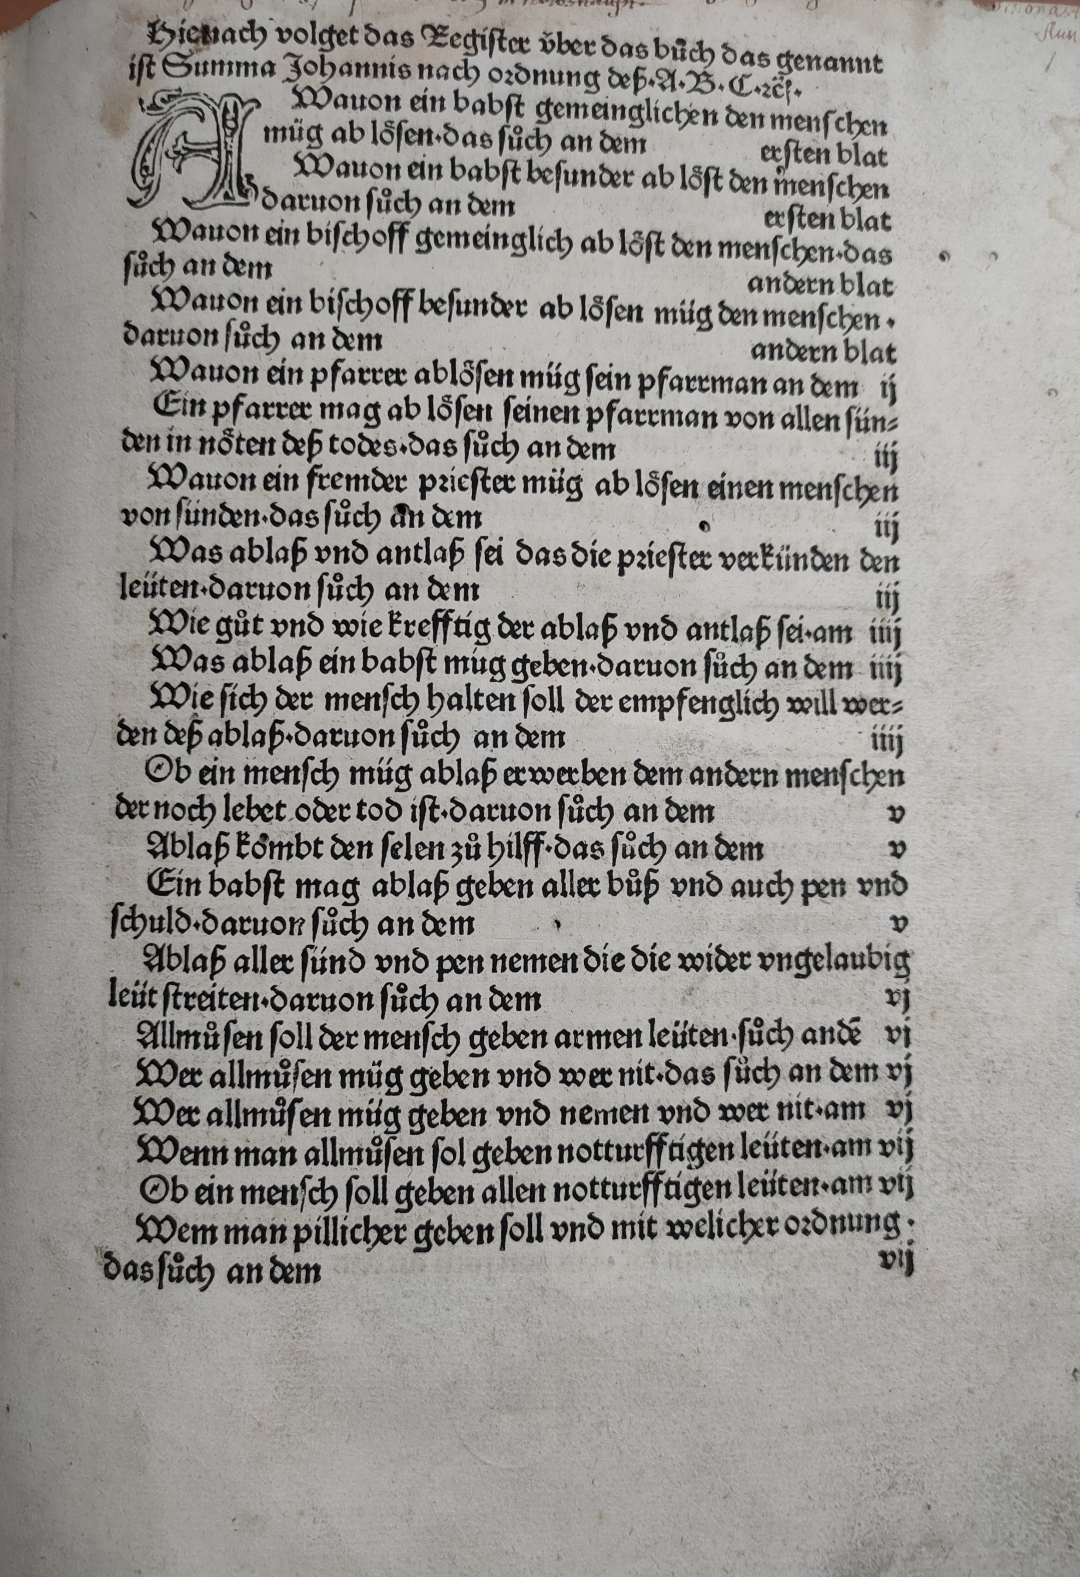 Hienach volget das Register v̈ber das bůch das genannt
ist Summa Johannis nach ordnung deß·A·B·C·ꝛc̄ꝭ·
A Wauon ein babst gemeinglichen den menschen
müg ab lösen·das sůch an dem ersten blat
Wauon ein babst besunder ab löst den menschen
daruon sůch an dem ersten blat
Wauon ein bischoff gemeinglich ab löst den menschen·das
sůch an dem andern blat
Wauon ein bischoff besunder ab lösen müg den menschen·
daruon sůch an dem andern blat
Wauon ein pfarrer ablösen müg sein pfarrman an dem ij
Ein pfarrer mag ab lösen seinen pfarrman von allen sün⸗
den in nöten deß todes·das sůch an dem iij
Wauon ein fremder priester müg ab lösen einen menschen
von sünden·das sůch an dem iij
Was ablaß vnd antlaß sei das die priester verkünden den
leüten·daruon sůch an dem iij
Wie gůt vnd wie krefftig der ablaß vnd antlaß sei·am iiij
Was ablaß ein babst müg geben·daruon sůch an dem iiij
Wie sich der mensch halten soll der empfenglich will wer⸗
den deß ablaß·daruon sůch an dem iiij
Ob ein mensch müg ablaß erwerben dem andern menschen
der noch lebet oder tod ist·daruon sůch an dem v
Ablaß kömbt den selen zů hilff·das sůch an dem v
Ein babst mag ablaß geben aller bůß vnd auch pen vnd
schuld·daruon sůch an dem v
Ablaß aller sünd vnd pen nemen die die wider vngelaubig
leüt streiten·daruon sůch an dem vj
Allmůsen soll der mensch geben armen leüten·sůch an dē vj
Wer allmůsen müg geben vnd wer nit·das sůch an dem vj
Wer allmůsen müg geben vnd nemen vnd wer nit·am vj
Wenn man allmůsen sol geben notturfftigen leüten·am vij
Ob ein mensch soll geben allen notturfftigen leüten·am vij
Wem man pillicher geben soll vnd mit welicher ordnung·
das sůch an dem vij